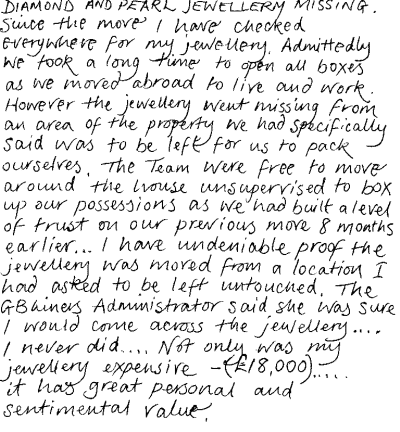 DIAMOND AND PEARL JEWELLERY MISSING.
Since the move I have checked
everywhere for my jewellery. Admittedly
we took a long time to open all boxes
as we moved abroad to live and work.
However the jewellery went missing from
an area of the property we had specifically
said was to be left for us to pack
ourselves. The Team were free to move
around the house unsupervised to box
up our possessions as we had built a level
of trust on our previous move 8 months
earlier... I have undeniable proof the
jewellery was moved from a location I
had asked to be left untouched. The
GBLiners Administrator said she was sure
I would come across the jewellery....
I never did.... Not only was my
jewellery expensive - (£18,000).....
it has great personal and
sentimental value.